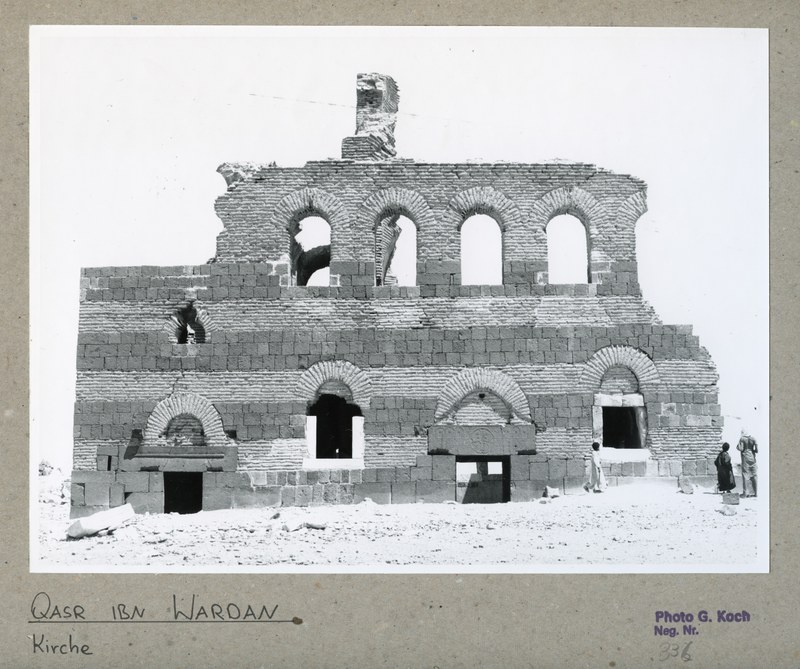 QASR IBN WARDAN
Kirche
Photo G. Koch
Neg. Nr.